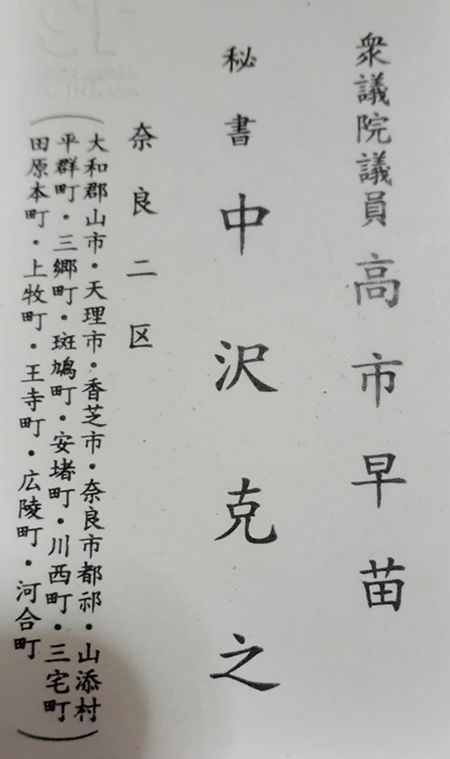 衆議院議員 高市早苗
秘書 中沢克之
奈良二区
(大和郡山市・天理市・香芝市・奈良市都祁・山添村
平群町・三郷町・斑鳩町・安堵町・川西町・三宅町
田原本町・上牧町・王寺町・広陵町・河合町)